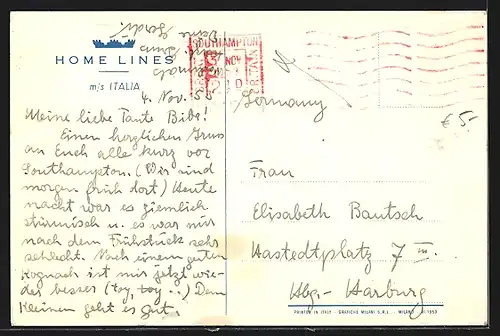 HOME LINES
m/s ITALIA
4. Nov. 5
Meine liebe Tante Bibs!
Einen herzlichen Gruss
an Euch alle kurz vor
Southampton. (Wir sind
morgen früh dort) Heute
nacht war es ziemlich
stürmisch u. es war mir
nach dem Frühstück sehr
schlecht. Nach einem guten
Kognach ist mir jetzt wie-
der besser (toy, toy ..) Dem
Kleinen geht es gut.
SOUTHAMPTON
NOV
Germany
€ 5.-
Frau
Elisabeth Bautsch
Hastedtplatz 7 III.
Hbg.-Harburg
PRINTED IN ITALY - GRAFICHE MILANI S.R.L. - MILANO